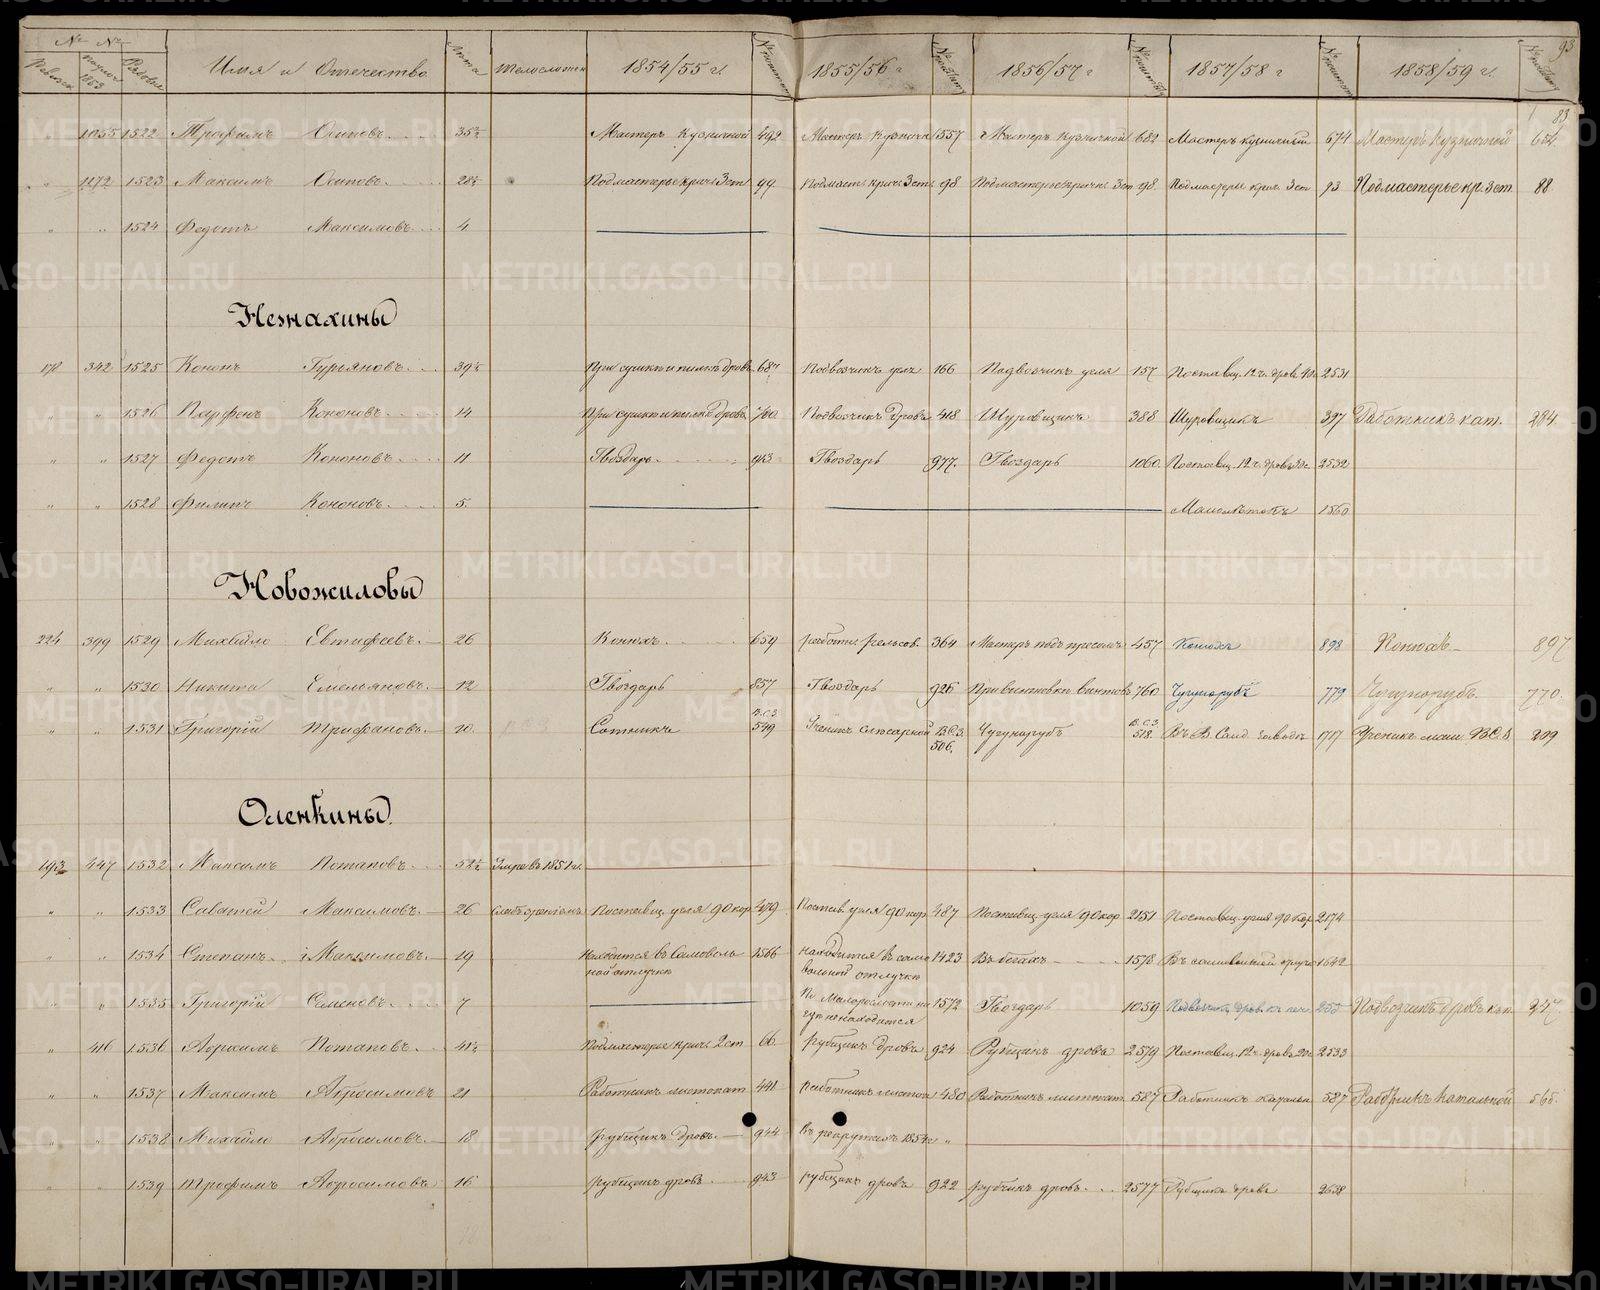 93
№ №
Имя и Отчество
Лѣта
Тѣлосложен
1854/55 г.
1855/56 г
1856/57 г
1857/58 г
1858/59 г.
83
1055 1522 Трофимъ Осиповъ 35½ Мастеръ кузничной 492 Мастеръ кузнич 1557 Мастеръ кузничной 682 Мастеръ кузничный 674 Мастеръ кузничной 654
1172 1523 Максимъ Осиповъ 28½ Подмастерье крич. 3 ст 99 Подмаст. крич. 3 ст. 98 Подмастерье кричн. 3 ст 98 Подмастерье крич. 3 ст 93 Подмастерье кр. 3 ст 88
" " 1524 Федотъ Максимовъ 4
Незнахины
178 342 1525 Кононъ Гурьяновъ 39½ При сушкѣ и пилкѣ дровъ 687 Подвозчикъ угля 166 Подвозчикъ угля 157 Поставщ. 12 ч. дровъ 2531
" " 1526 Парфенъ Кононовъ 14 При сушкѣ и пилкѣ дровъ 700 Подвозчикъ дровъ 418 Шуровщикъ 388 Шуровщикъ 397 Работникъ кат. 284
" " 1527 Федотъ Кононовъ 11 Гвоздарь 913 Гвоздарь 977 Гвоздарь 1060 Поставщ. 12 ч. дровъ 2532
" " 1528 Филипъ Кононовъ 5 Малолѣтокъ 1560
Новожиловы
224 399 1529 Михайло Евтифеевъ 26 Конюхъ 659 работн. рельсов. 364 Мастеръ подъ прессомъ 457 Конюхъ 898 Конюхъ 897
" " 1530 Никита Емельяновъ 12 Гвоздарь 857 Гвоздарь 926 При винтовкѣ винтовъ 760 Чугунорубъ 779 Чугунорубъ 770
" " 1531 Григорій Трифановъ 10 Сотникъ В.С.З. 549 Ученикъ слесарной В.С.З. 506 Чугунорубъ В.С.З. 518 Въ В Салд. заводѣ 1717 Ученикъ маш. В.С.З 209
Оленкины
193 447 1532 Максимъ Потаповъ 52½ Умре въ 1851 г.
" " 1533 Саватей Максимовъ 26 Поставщ. угля 90 кор 479 Постав. угля 90 кор 487 Поставщ. угля 90 кор 2151 Поставщ. угля 90 кор 2174
" " 1534 Степанъ Максимовъ 19 Находится въ самовольной отлучкѣ 1566 находится въ самовольной отлучкѣ 1423 Въ бѣгахъ 1578 1642
" " 1535 Григорій Семеновъ 7 По малорослости 1572 Гвоздарь 1059 Подвозчикъ дровъ 947
" 416 1536 Абросимъ Потаповъ 41½ Подмастерье крич. 2 ст 66 рубщикъ дровъ 924 Рубщикъ дровъ 2579 Поставщ. 12 ч. дровъ 2533
" " 1537 Максимъ Абросимовъ 21 Работникъ листокат 441 работникъ листок 480 Работникъ листокат 587 Работникъ катальн 587 Работникъ катальной 565
" " 1538 Михайло Абросимовъ 18 рубщикъ дровъ 944 Въ рекрутахъ 1854 г.
" " 1539 Трофимъ Абросимовъ 16 рубщикъ дровъ 943 рубщикъ дровъ 922 рубщикъ дровъ 2577 Рубщикъ дровъ 2638
METRIKI.GASO-URAL.RU